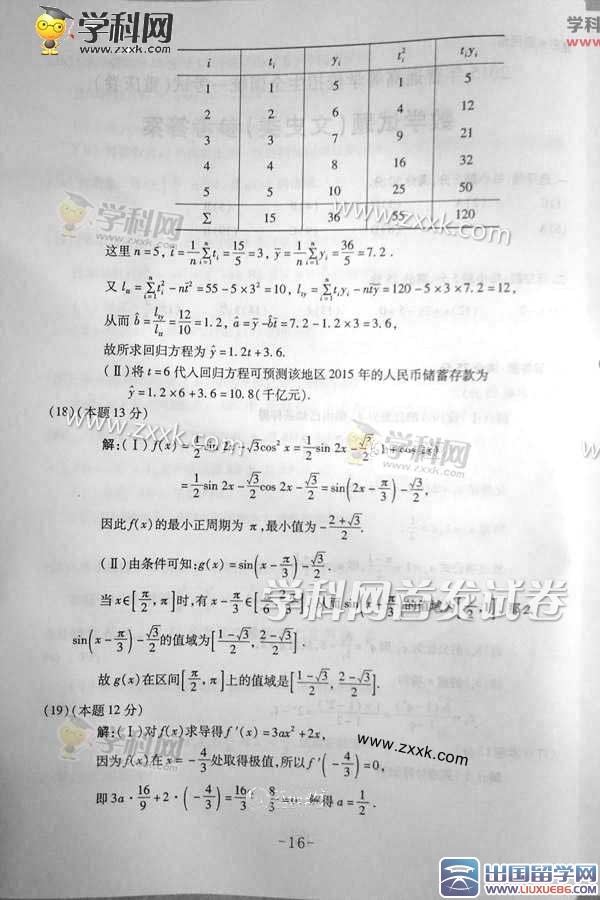 学科网
www.zxxk.com
i t_i y_i t_i^2 t_i y_i
1 1 5 1 5
2 2 6 4 12
3 3 7 9 21
4 4 8 16 32
5 5 10 25 50
Σ 15 36 55 120
学科网
www.zxxk.com
这里 n=5, t̄=1/n Σ_{i=1}^{n} t_i=15/5=3, ȳ=1/n Σ_{i=1}^{n} y_i=36/5=7.2.
又 l_{tt}=Σ_{i=1}^{n} t_i^2-nt̄^2=55-5×3^2=10, l_{ty}=Σ_{i=1}^{n} t_i y_i-nt̄ȳ=120-5×3×7.2=12,
从而 b̂=l_{ty}/l_{tt}=12/10=1.2, â=ȳ-b̂t̄=7.2-1.2×3=3.6,
故所求回归方程为 ŷ=1.2t+3.6.
(Ⅱ)将 t=6 代入回归方程可预测该地区 2015 年的人民币储蓄存款为
ŷ=1.2×6+3.6=10.8(千亿元).
(18)(本题 13 分)
www.zxxk.com
学科网
www.zxxk.com
解:(Ⅰ)f(x)=1/2 sin 2x-√3cos^2 x=1/2 sin 2x-√3/2(1+cos 2x)
=1/2 sin 2x-√3/2 cos 2x-√3/2=sin(2x-π/3)-√3/2,
因此 f(x)的最小正周期为 π,最小值为-(2+√3)/2.
(Ⅱ)由条件可知:g(x)=sin(x-π/3)-√3/2.
学科网首发试卷
当 x∈[π/2,π]时,有 x-π/3∈[π/6,2π/3],从而 sin(x-π/3)的值域为[1/2,1],那么
sin(x-π/3)-√3/2的值域为[(1-√3)/2,(2-√3)/2].
故 g(x)在区间[π/2,π]上的值域是[(1-√3)/2,(2-√3)/2].
(19)(本题 12 分)
学科网
www.zxxk.com
解:(Ⅰ)对 f(x)求导得 f′(x)=3ax^2+2x,
因为 f(x)在 x=-4/3处取得极值,所以 f′(-4/3)=0,
即 3a·16/9+2·(-4/3)=16a/3-8/3=0,解得 a=1/2.
-16-
出国留学网
www.liuxue86.com